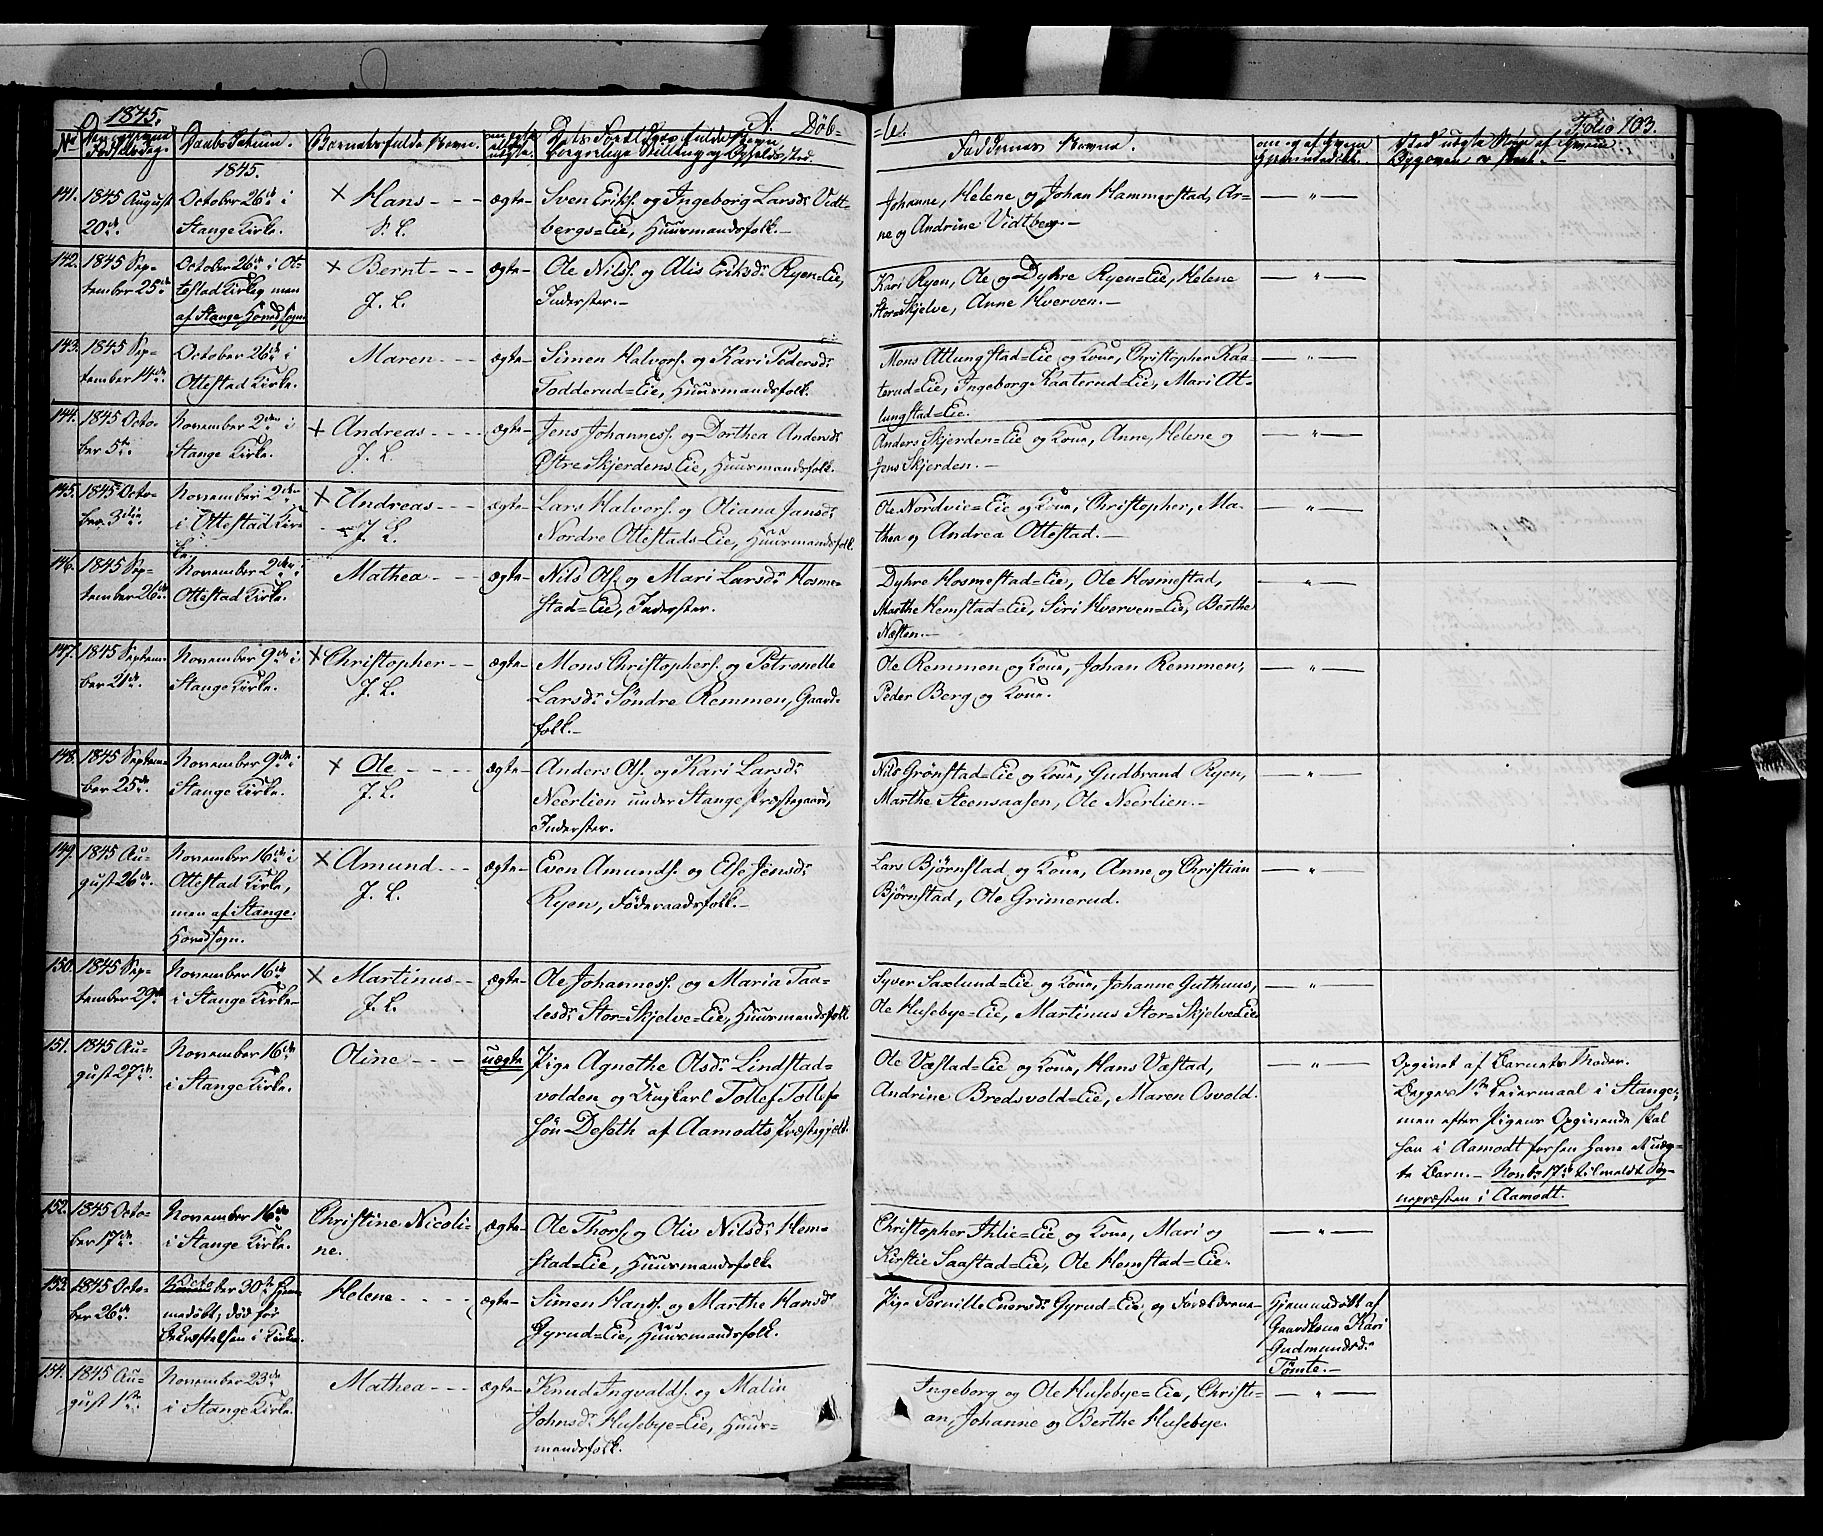 1845. A. Døb-
=te. Folio 103.
No Børnenes Fødselsdag. Daabs Datum. Barnets fulde Navn. om ægte eller uægte. Dets Forældres fulde Navn, borgerlige Stilling og Opholdssted.
Faddernes Navne.
1845.
141. 1845 August 20de. October 26de i Stange Kirke. × Hans - - - J. L. ægte - Sven Eriks. og Ingeborg Larsdr Vidt-
bergs=Eie, Huusmandsfolk. -
Johanne, Helene og Johan Hammerstad, Ar-
ne og Andrine Vidtberg. - — " —
142. 1845 Sep-
tember 25de. October 26de i Ot-
testad Kirke, men
af Stange Hovedsogn × Bernt - - - J. L. ægte - Ole Nilss. og Alis Eriksdr Ryen=Eie,
Inderster. -
Kari Ryen, Ole og Dyhre Ryen=Eie, Helene
Stor=Skjelve, Anne Hverven. - — " —
143. 1845 Sep-
tember 14de. October 26de i
Ottestad Kirke. Maren - - - ægte - Simen Halvors. og Kari Pedersdr
Todderud=Eie, Huusmandsfolk.
Mons Atlungstad=Eie og Kone, Christopher Kaa-
terud=Eie, Ingeborg Kaaterud=Eie, Mari At-
lungstad=Eie. — " —
144. 1845 Octo-
ber 5te. November 2den i
Stange Kirke. + Andreas - - - J. L. ægte - Jens Johanness. og Dorthea Andersdr
Østre Skjerdens Eie, Huusmandsfolk.
Anders Skjerden=Eie og Kone, Anne, Helene og
Jens Skjerden. - — " —
145. 1845 Octo-
ber 3die November 2den
i Ottestad Kir-
ke. × Andreas - - J. L. ægte - Lars Halvors. og Oliana Jansdr
Nordre Ottestads=Eie, Huusmandsfolk.
Ole Nordvie=Eie og Kone, Christopher, Ma-
thea og Andrea Ottestad. - — " —
146. 1845 Sep-
tember 26de. November 2den i
Ottestad Kirke. Mathea - - ægte - Nils Ols. og Mari Larsdr Hosme-
stad=Eie, Inderster.
Dyhre Hosmestad=Eie, Ole Hosmestad,
Marthe Hemstad=Eie, Siri Hverven=Eie, Berthe
Næsten. - — " —
147. 1845 Septem-
ber 21de. November 9de i
Stange Kirke. × Christopher - - J. L. ægte - Mons Christophers. og Petronelle
Larsdr Søndre Remmen, Gaard-
folk. -
Ole Remmen og Kone, Johan Remmen,
Peder Berg og Kone. — " —
148. 1845 Septem-
ber 25de. November 9de i
Stange Kirke. × Ole - - - - J. L. ægte - Anders Ols. og Kari Larsdr
Neerlien under Stange Præstegaard,
Inderster.
Nils Grønstad=Eie og Kone, Gudbrand Ryen,
Marthe Steensaasen, Ole Neerlien. - — " —
149. 1845 Au-
gust 26de. November 16de i
Ottestad Kirke,
men af Stange
Hovedsogn. × Amund - - - J. L. ægte - Even Amunds. og Else Jensdr
Ryen, Føderaadsfolk. -
Lars Bjørnstad og Kone, Anne og Christian
Bjørnstad, Ole Grimerud. — " —
150. 1845 Sep-
tember 29de November 16de
i Stange Kirke - × Martinus - - J. L. ægte - Ole Johanness. og Maria Taa-
lesdr Stor=Skjelve=Eie, Huusmandsfolk
Syver Saxlund=Eie og Kone, Johanne Guthuus,
Ole Husebye=Eie, Martinus Stor=Skjelve=Eie — " —
151. 1845 Au-
gust 27de. November 16de
i Stange Kirke. Oline - - - uægte Pige Agnethe Olsdr Lindstad=
volden og Ungkarl Tollef Tollef-
søn Deseth af Aamodts Præstegjeld.
Ole Væstad=Eie og Kone, Hans Væstad,
Andrine Bredsvold=Eie, Maren Osvold. — " —
Opgivet af Barnets Moder.
Begges 1ste Leiermaal i Stange,
men efter Pigens Opgivende skal
han i Aamodt forhen have et uæg-
te Barn. - Novbr 17de tilmeldt Sog-
nepræsten i Aamodt.
152. 1845 Octo-
ber 17de. November 16de
i Stange Kirke. Christine Nicoli-
ne. ægte - Ole Thors. og Oliv Nilsdr Hem-
stad=Eie, Huusmandsfolk
Christopher Ihlie=Eie og Kone, Mari og
Kirstie Saastad=Eie, Ole Hemstad=Eie. — " —
153. 1845 Octo-
ber 26de. October 30te hjem-
medøbt; død før
Bekræftelsen i Kirken. Helene - - - - ægte - Simen Hanss. og Marthe Hansdr
Gyrud=Eie, Huusmandsfolk.
Pige Pernille Enersdr Gyrud=Eie og Forældrene - Hjemmedøbt af
Gaardkone Kari
Gudmundsdr
Tømte. -
154. 1845 Au-
gust 1ste November 23de
i Stange Kirke. Mathea - - - ægte - Knud Ingvalds. og Malin
Johnsdr Husebye=Eie, Huus-
mandsfolk.
Ingeborg og Ole Husebye=Eie, Christi-
an, Johanne og Berthe Husebye. — " —